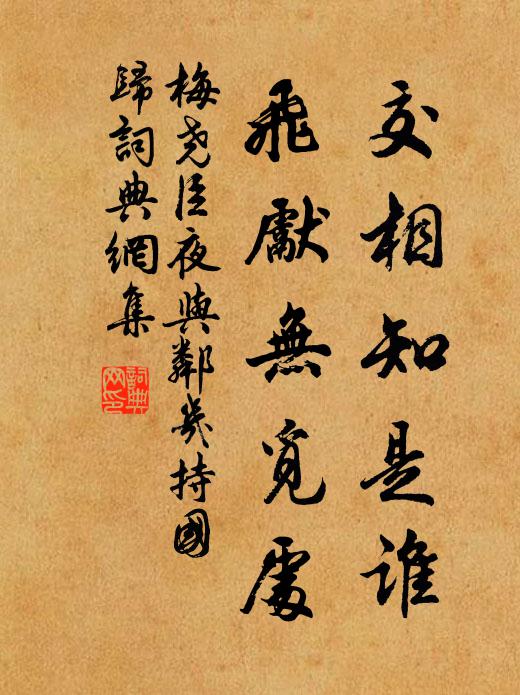 交相知是誰
飛獻無覓處
梅尧臣夜與鄰幾持國
歸詞典網集
詞典网印